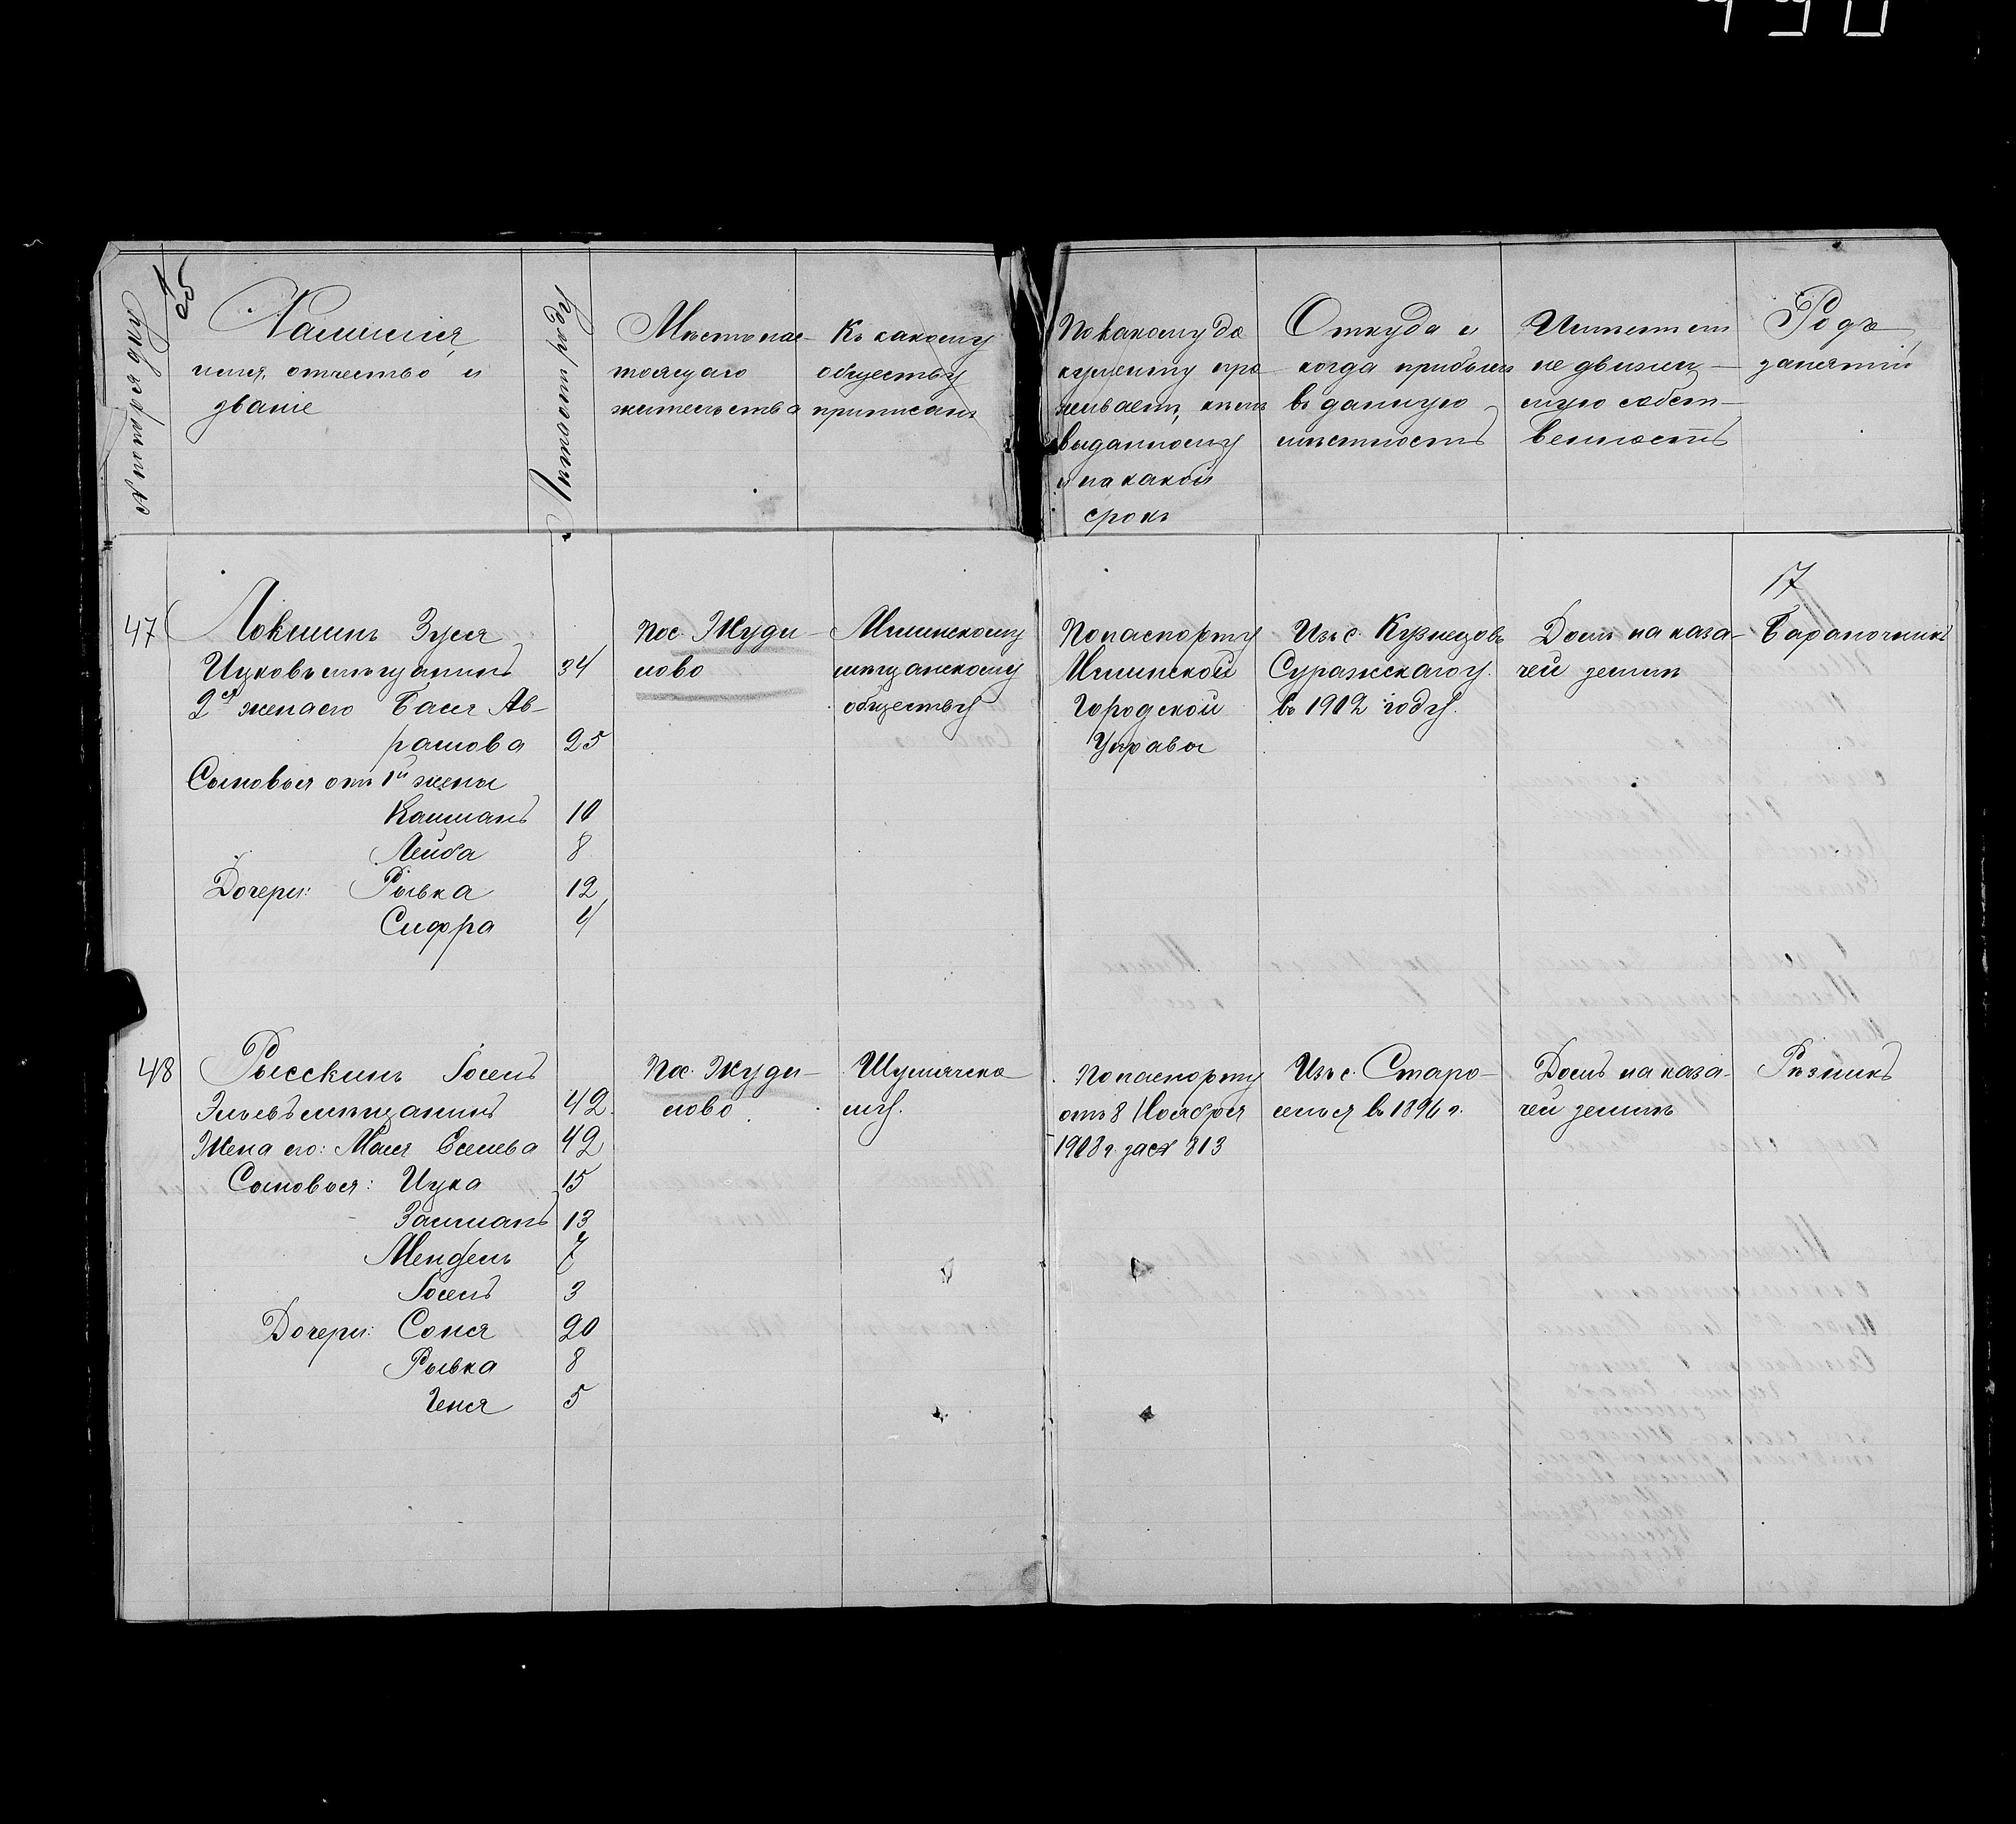 № по порядку
Фамилія,
имя, отчество и
званіе
Лета от роду
Место нас-
тоящаго
жительства
Къ какому
обществу
приписанъ
По какому до
кументу про
живаетъ, кемъ
выданному
и на какой
срокъ
Откуда и
когда прибылъ
въ данную
местность
Имеетъ ли
недвижи-
мую собст-
венность
Родъ
занятій
17
47
Локшинъ Зуся
Ицковъ мещанинъ 34
2я жена его Бася Аб-
рамова 25
Сыновья отъ 1й жены
Калманъ 10
Лейба 8
Дочери: Рывка 12
Сифра 4
пос. Жуди-
лово
Мглинскому
мещанскому
обществу
По паспорту
Мглинской
Городской
Управы
Изъ с. Кузнецовъ
Суражскаго у.
въ 1902 году.
Домъ на каза-
чей земле
Бараночникъ
48
Рысскинъ Іосель
Эльевъ мещанинъ 42.
Жена его: Маня Еселева 42
Сыновья: Ицка 15
Залманъ 13
Мендель 7
Іосель 3
Дочери: Соня 20
Рывка 8
Геня 5
Пос. Жуди-
лово
Шумячско
му.
По паспорту
отъ 8 Ноября
1908 г. за № 813
Изъ с. Старо-
селья въ 1896 г.
Домъ на каза-
чей земле
Резникъ